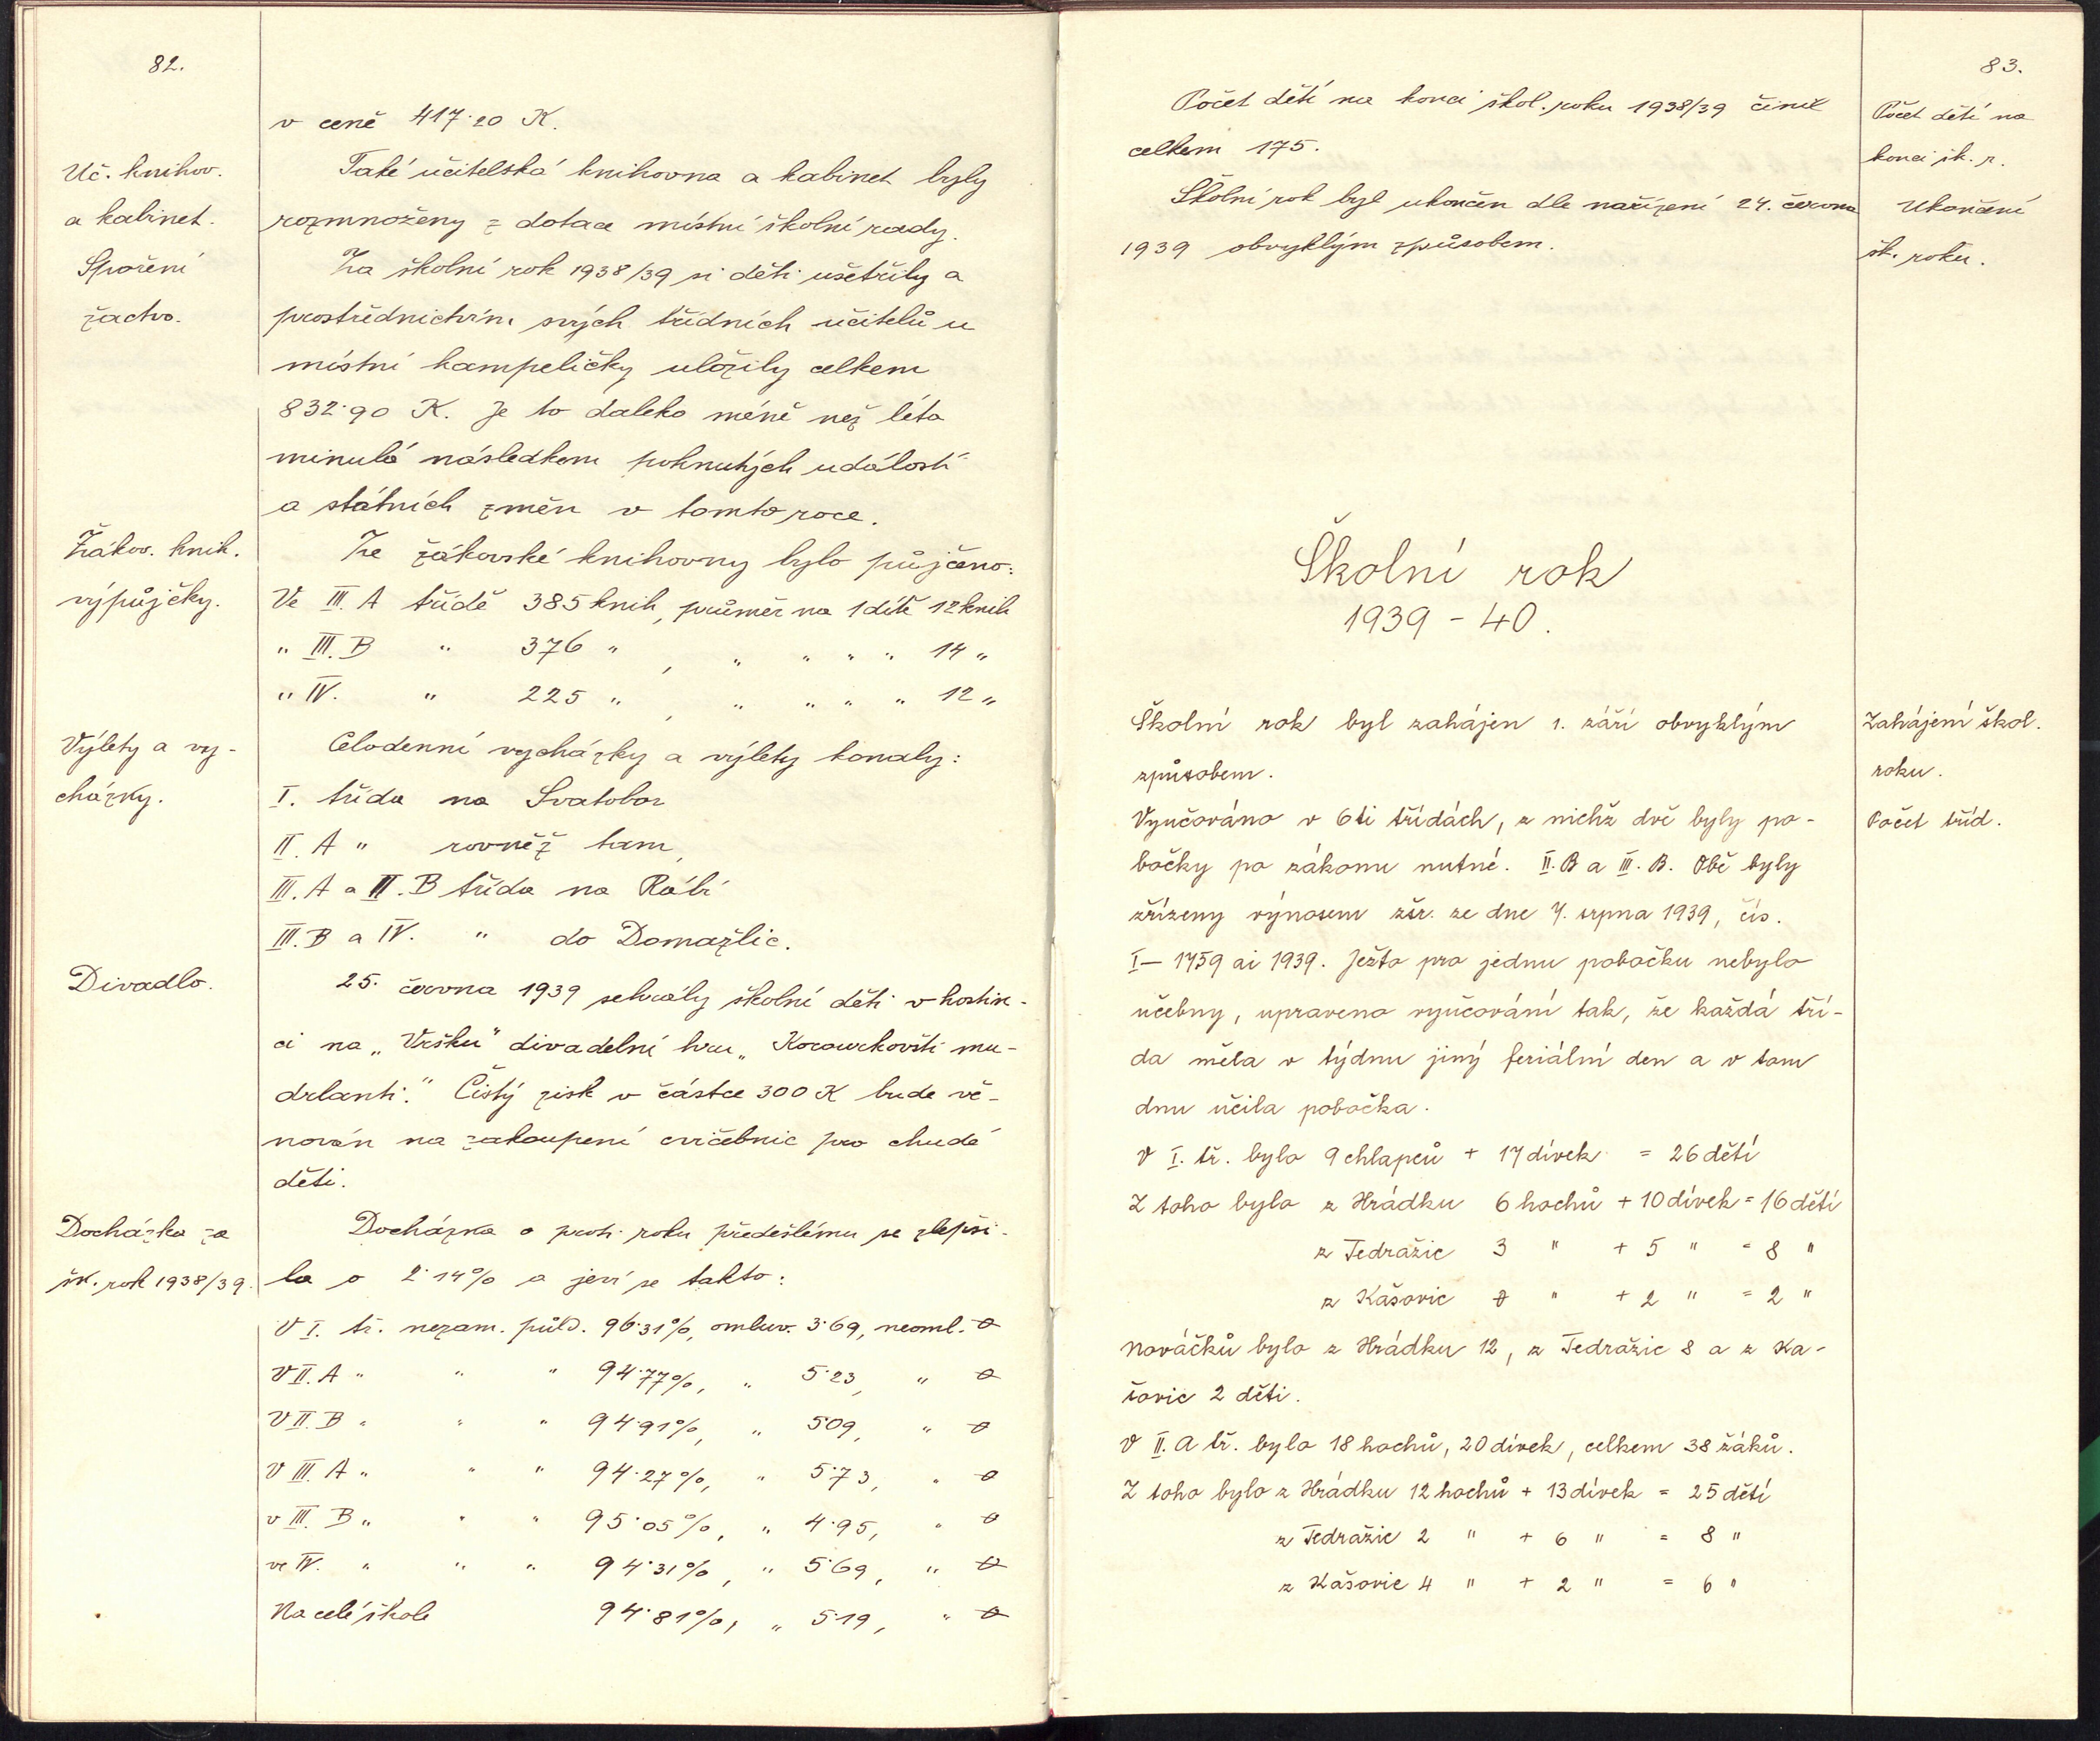 82.
v ceně 417·20 K.
Uč. knihov.
a kabinet.
Také učitelská knihovna a kabinet byly
rozmnoženy z dotace místní školní rady.
Spoření
žactva.
Za školní rok 1938/39 si děti ušetřily a
prostřednictvím svých třídních učitelů u
místní kampeličky uložily celkem
832·90 K. Je to daleko méně než léta
minulá následkem pohnutých událostí
a státních změn v tomto roce.
Žákov. knih.
výpůjčky.
Ze žákovské knihovny bylo půjčeno:
Ve III. A třídě 385 knih, průměr na 1 dítě 12 knih
" III. B " 376 " , " " " " 14 "
" IV. " 225 " , " " " " 12 "
Výlety a vy-
cházky.
Celodenní vycházky a výlety konaly:
I. třída na Svatobor
II. A " rovněž tam,
III. A a II. B třída na Rábí
III. B a IV. " do Domažlic.
Divadlo.
25. června 1939 sehrály školní děti v hostin-
ci na „Vršku" divadelní hru „Kocourkovští mu-
drlanti." Čistý zisk v částce 300 K bude vě-
nován na zakoupení cvičebnic pro chudé
děti.
Docházka za
šk. rok 1938/39.
Docházka o proti roku předešlému se zlepši-
la o 2·14% a jeví se takto:
V I. tř. nezam. půld. 96·31%, omluv. 3·69, neoml. 0
V II. A " " " 94·77%, " 5·23, " 0
V II. B " " " 94·91%, " 5·09, " 0
V III. A " " " 94·27%, " 5·73, " 0
v III. B " " " 95·05%, " 4·95, " 0
ve IV. " " " 94·31%, " 5·69, " 0
Na celé škole 94·81%, " 5·19, " 0
83.
Počet dětí na konci škol. roku 1938/39 činil
celkem 175.
Počet dětí na
konci šk. r.
Školní rok byl ukončen dle nařízení 24. června
1939 obvyklým způsobem.
Ukončení
šk. roku.
Školní rok
1939 - 40.
Školní rok byl zahájen 1. září obvyklým
způsobem.
Zahájení škol.
roku.
Vyučováno v 6ti třídách, z nichž dvě byly po-
bočky po zákonu nutné. II. B a III. B. Obě byly
zřízeny výnosem zšr. ze dne 7. srpna 1939, čís.
I - 1759 ai 1939. Ježto pro jednu pobočku nebylo
učebny, upraveno vyučování tak, že každá tří-
da měla v týdnu jiný feriální den a v tom
dnu učila pobočka.
Počet tříd.
V I. tř. bylo 9 chlapců + 17 dívek = 26 dětí
Z toho bylo z Hrádku 6 hochů + 10 dívek = 16 dětí
z Tedražic 3 " + 5 " = 8 "
z Kašovic 0 " + 2 " = 2 "
Nováčků bylo z Hrádku 12, z Tedražic 8 a z Ka-
šovic 2 děti.
V II. A tř. bylo 18 hochů, 20 dívek, celkem 38 žáků.
Z toho bylo z Hrádku 12 hochů + 13 dívek = 25 dětí
z Tedražic 2 " + 6 " = 8 "
z Kašovic 4 " + 2 " = 6 "